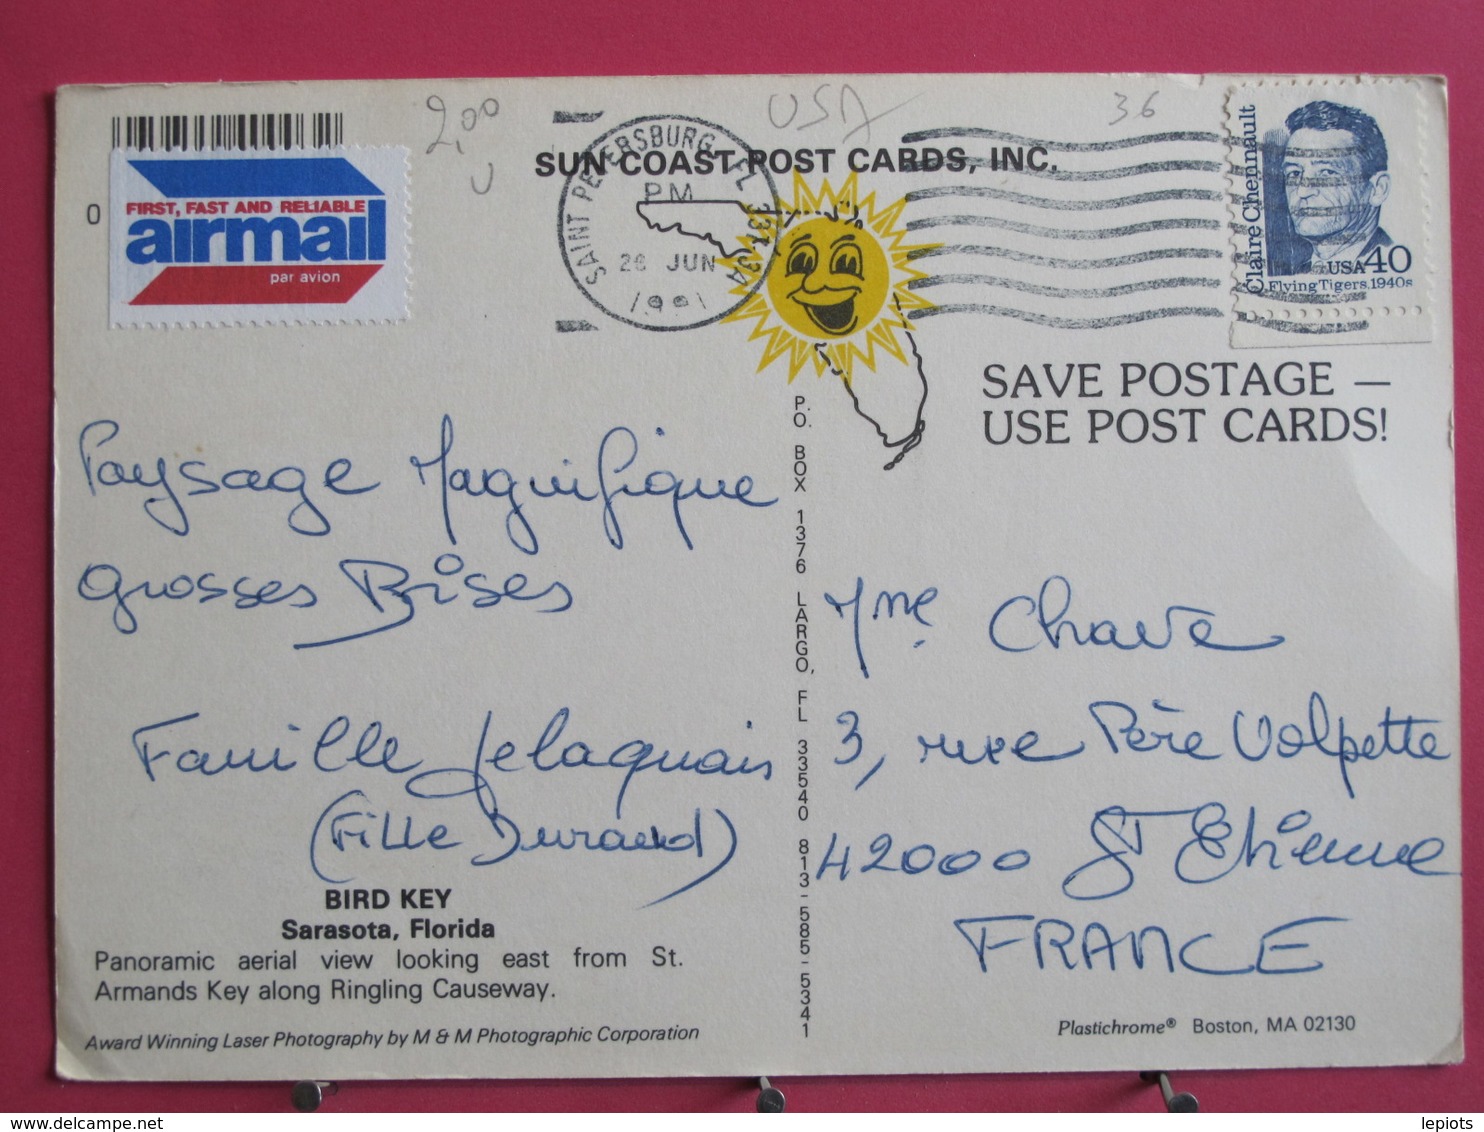 2,00
U
USA
36
FIRST, FAST AND RELIABLE
airmail
par avion
0
SUN COAST POST CARDS, INC.
SAINT PETERSBURG, FL 337
PM
26 JUN
1991
Claire Chennault
USA 40
Flying Tigers, 1940s
SAVE POSTAGE —
USE POST CARDS!
Paysage Magnifique
grosses Bises
Famille Jelaquais
(Fille Durand)
P. O. BOX 1376 LARGO, FL 33540 813-585-5341
Mme Chave
3, rue Père Volpette
42000 St Etienne
FRANCE
BIRD KEY
Sarasota, Florida
Panoramic aerial view looking east from St.
Armands Key along Ringling Causeway.
Award Winning Laser Photography by M & M Photographic Corporation
Plastichrome® Boston, MA 02130
delcampe.net
lepiots